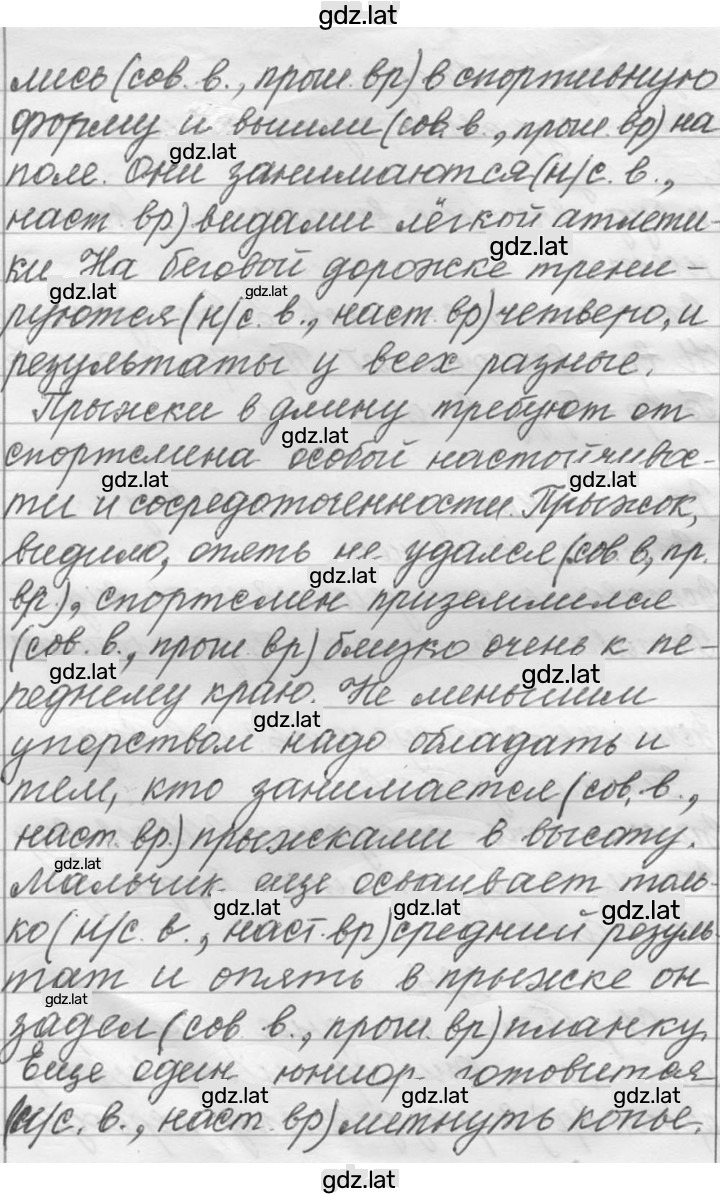 gdz.lat
лись (сов. в., прош. вр) в спортивную
форму и вышли (сов. в., прош. вр) на
gdz.lat
поле. Они занимаются (н/с. в.,
наст. вр) видами лёгкой атлети-
gdz.lat
ки На беговой дорожке трени-
gdz.lat gdz.lat
руются (н/с. в., наст. вр) четверо, и
результаты у всех разные.
Прыжки в длину требуют от
gdz.lat
спортсмена особой настойчивос-
gdz.lat gdz.lat
ти и сосредоточенности. Прыжок,
видимо, опять не удался (сов. в, пр.
gdz.lat
вр.), спортсмен приземлился
(сов. в., прош. вр) близко очень к пе-
gdz.lat gdz.lat
реднему краю. Не меньшим
gdz.lat
упорством надо обладать и
тем, кто занимается (сов. в.,
наст. вр.) прыжками в высоту.
gdz.lat
Мальчик еще осваивает толь-
gdz.lat gdz.lat gdz.lat
ко (н/с. в., наст. вр) средний резуль-
тат и опять в прыжке он
gdz.lat
задел (сов. в., прош. вр) планку.
Еще один юниор готовится
gdz.lat gdz.lat gdz.lat
(н/с. в., наст. вр) метнуть копье.
gdz.lat